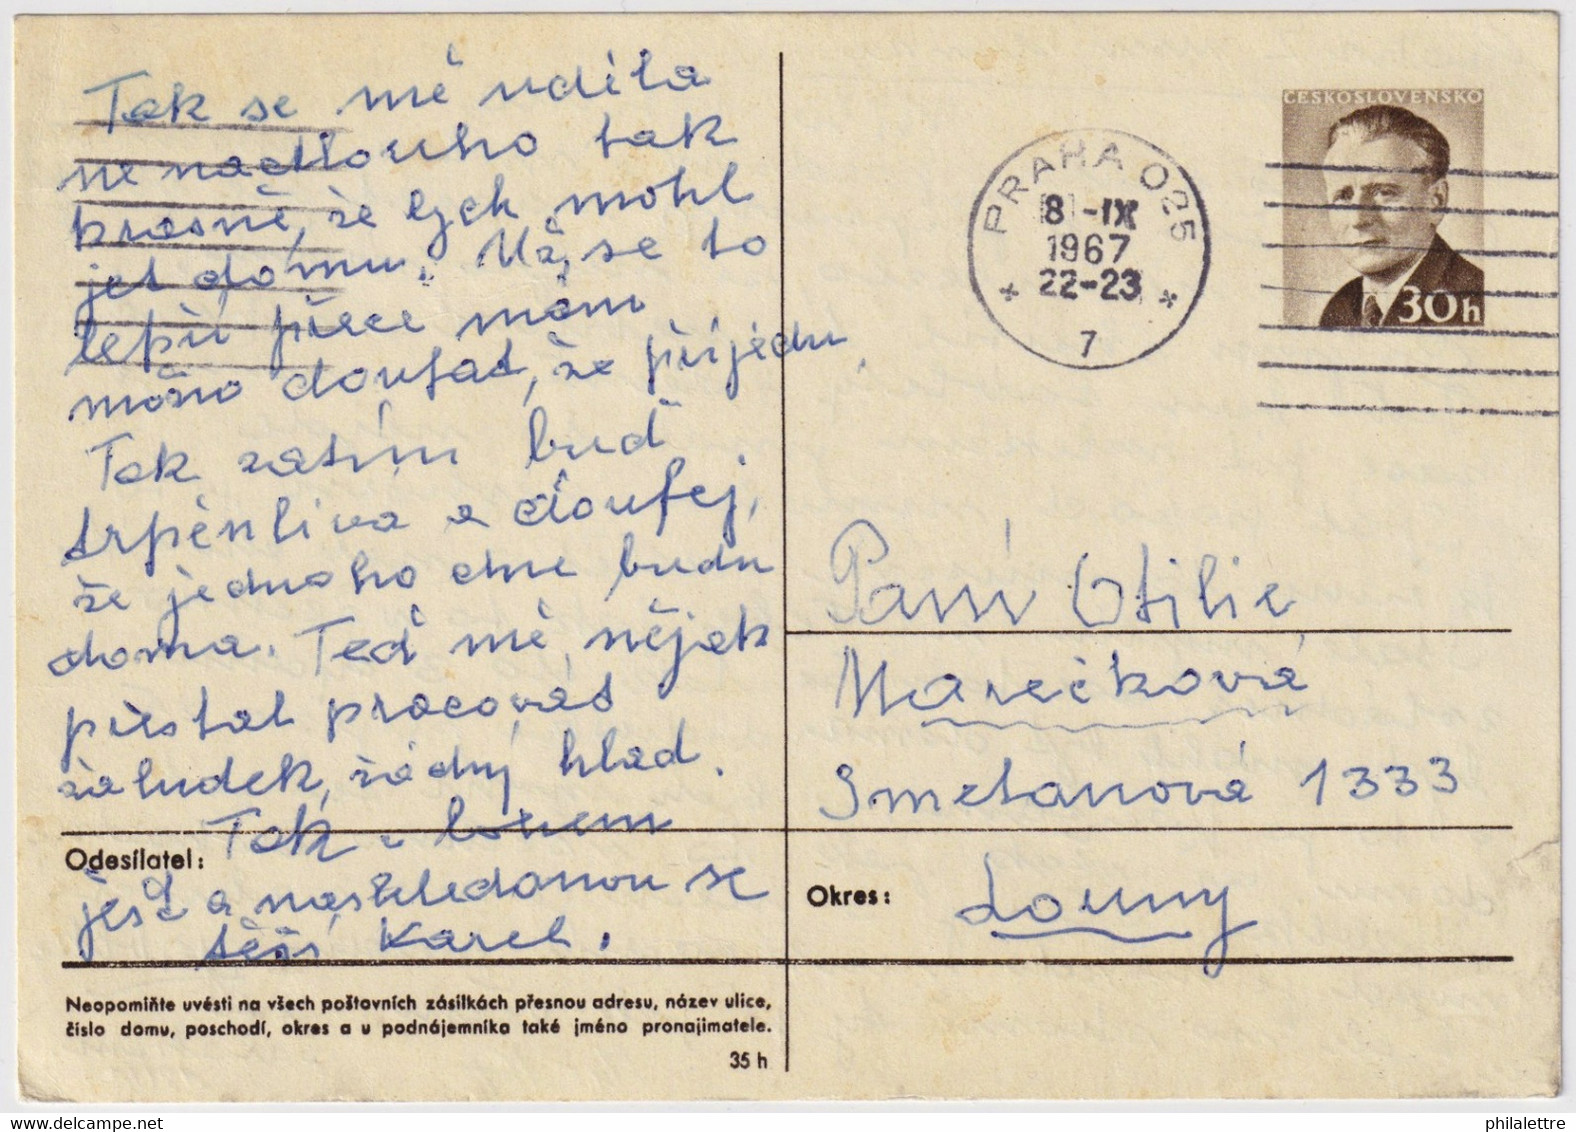 Tak se mě udělá
nenadtouho tak
krásně, že bych mohl
jet domu. Už se to
lepší přece mám
možno doufat, že přijedu.
Tak zatím buď
trpěnlivá a doufej,
že jednoho dne budu
doma. Teď mě nějak
přestal pracovat
žaludek, žádný hlad.
Tak
ješť a nashledanou se
těší Karel.
Odesílatel:
Neopomiňte uvésti na všech poštovních zásilkách přesnou adresu, název ulice,
číslo domu, poschodí, okres a u podnájemníka také jméno pronajímatele.
35 h
PRAHA 025
8.-IX
1967
22-23
7
ČESKOSLOVENSKO
30h
Paní Otilie
Marečková
Smetanová 1333
Okres: Louny
philalettre